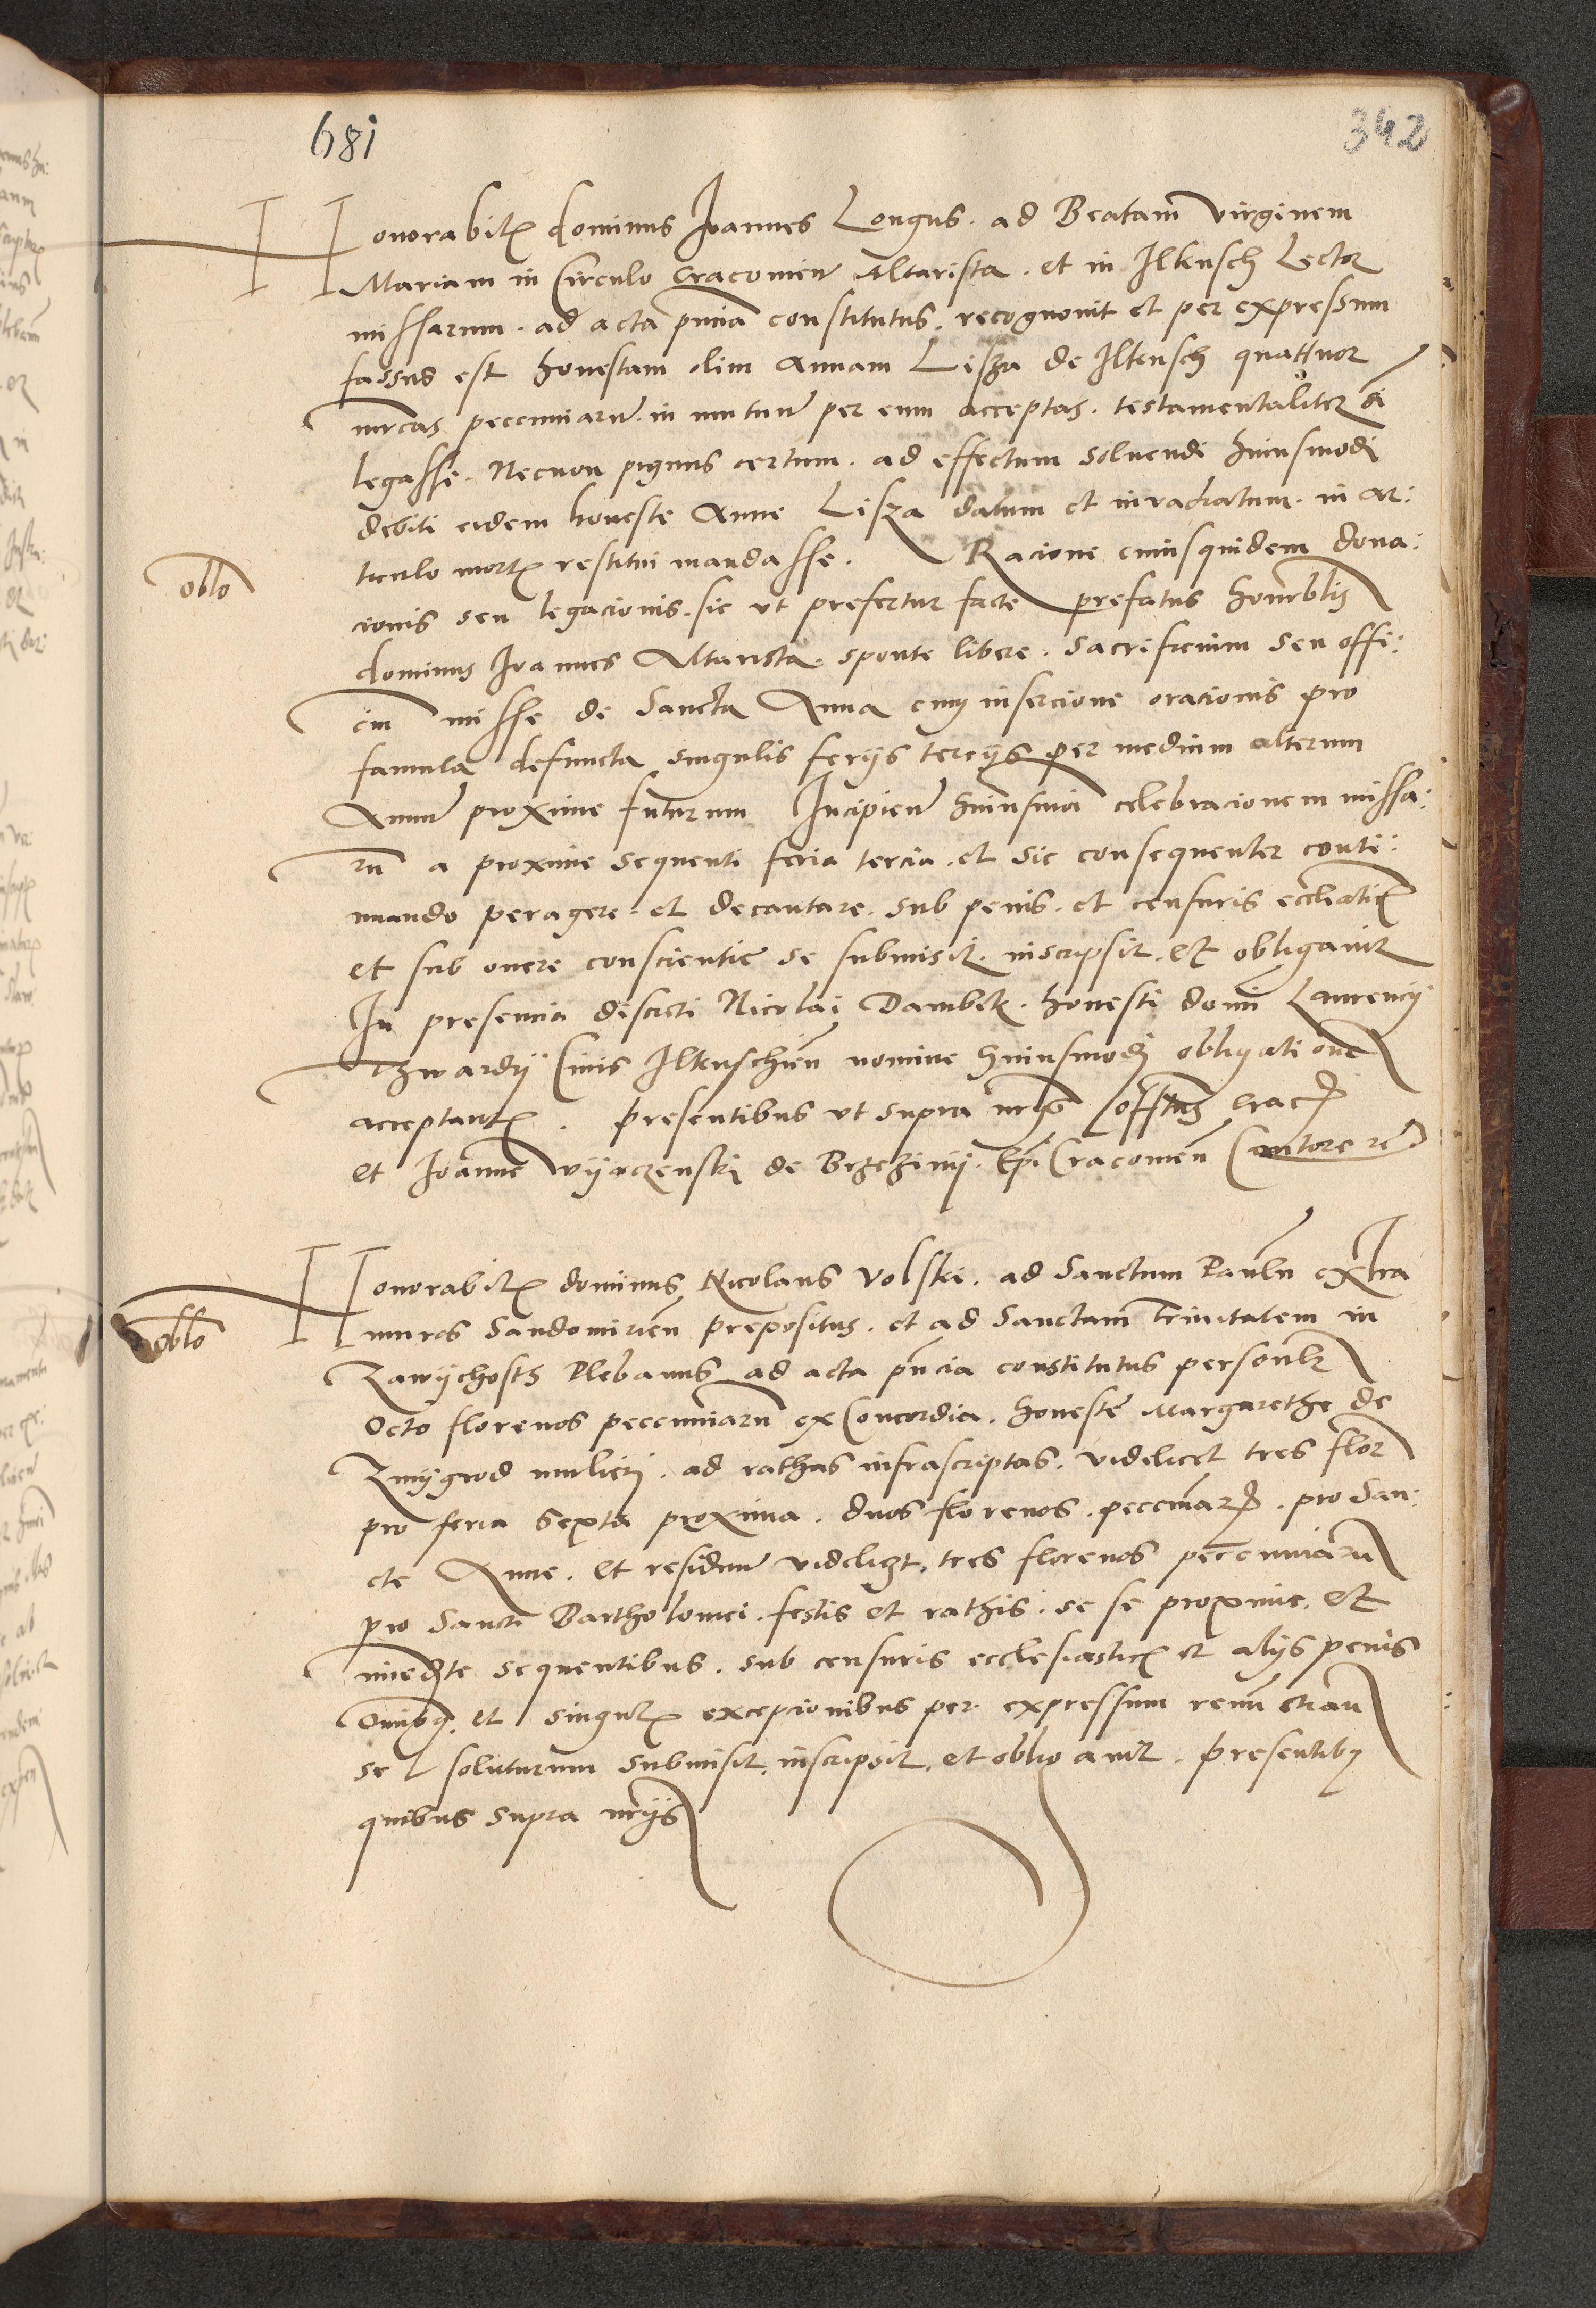 681
342
Honorabilis dominus Joannes Longus . ad Beatam virginem
Mariam in Circulo Cracovien Altarista . et in Ilkusch Lector
missarum . ad acta pncia constitutus . recognovit et per expressum
fassus est honestam olim Annam Lisza de Ilkusch quattuor
mrcas pecuniarum . in mutuum per eum acceptas . testamentaliter ei
legasse . Necnon pignus certum . ad effectum solvendi huiusmodi
debiti eidem honeste Anne Lisza datum et invadiatum . in ar:
oblo
ticulo mortis restitui mandasse . Racione cuiusquidem dona:
cionis seu legacionis . sic ut prefertur facte prefatus honorablis
dominus Joannes Altarista . sponte libere . sacrificium seu offi:
cium misse de Sancta Anna cum insercione orationis pro
famula defuncta singulis ferijs tercijs per medium alterum
Annum proxime futurum Incipien huiusmoi celebracionem missa:
rum a proxime sequenti feria tercia . et sic consequenter conti:
nuando peragere . et decantare . sub penis . et censuris eccleasticis
et sub onere conscientie se submisit . inscripsit . et obligavit
In presencia discreti Nicolai Dambek . honesti domi Laurencij
Thwardij Civis Ilkuschien nomine huiusmodi obligatione
acceptantis . presentibus ut supra Crac
et Joanne Wyaczenski de Brzeziny . Epi Cracovien Cantore

Honorabilis dominus Nicolaus Volski . ad Sanctum Paulum extra
oblo
muros Sandomirien prepositus . et ad Sanctam Trinitatem in
Zawychosth Plebanus ad acta pncia constitutus personlr
Octo florenos pecuniarum ex Concordia . honeste Margarethe de
Zmygrod mulieri . ad rathas infrascriptas . videlicet tres flor
pro feria Sexta proxima . duos florenos . pecuniar . pro San:
cte Anne . et residuum videlicet . tres florenos pecuniarum
pro Sancti Bartholomei . festis et rathis . se se proxime . et
imediate sequentibus . sub censuris ecclesiasticis et alijs penis
Omibq . et singulis excepcionibus per expressum
se soluturum submisit . inscripsit . et obligavit . presentibus
quibus supra